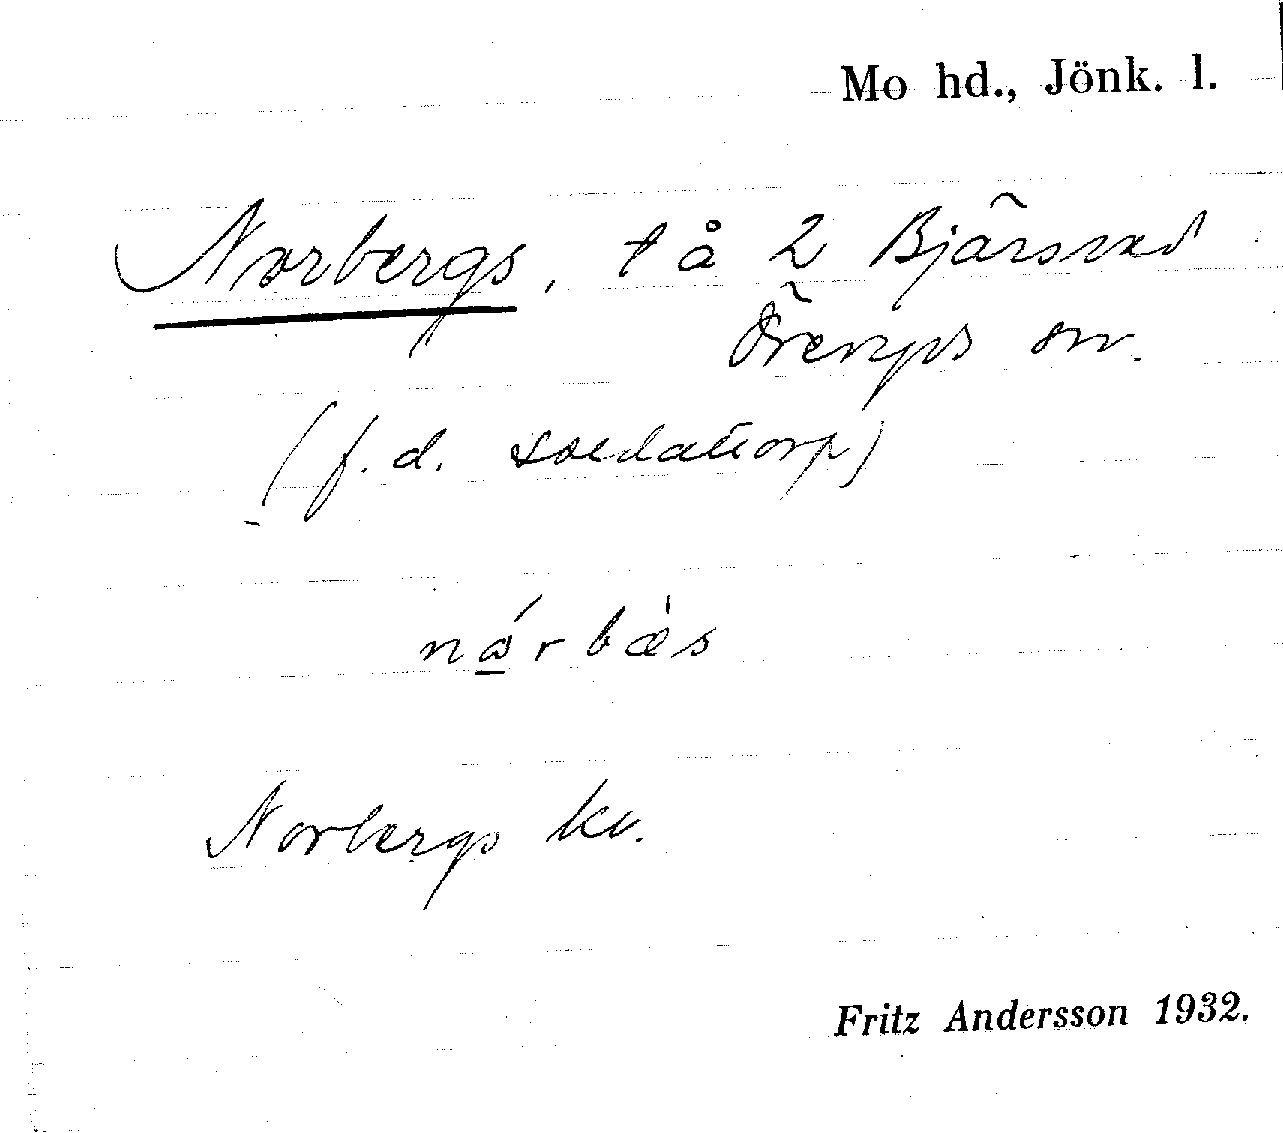 Mo hd., Jönk. l.
Norbergs, t å 2 Bjärsved
Öreryds sn.
(f.d. soldattorp)
nárbæ̀s
Norbergs kv.
Fritz Andersson 1932.